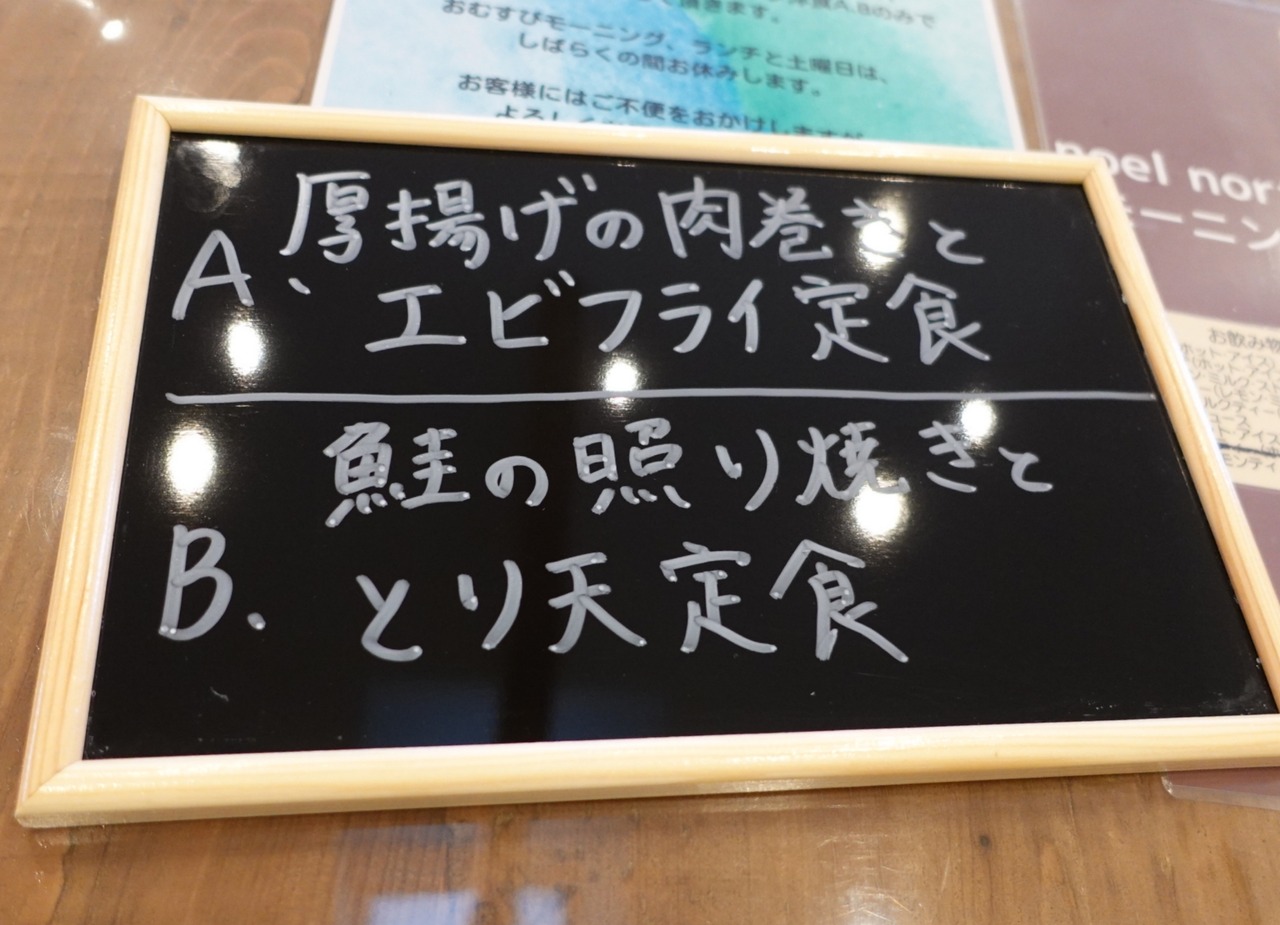 洋食A.Bのみで
頂きます。
おむすびモーニング、ランチと土曜日は、
しばらくの間お休みします。
お客様にはご不便をおかけしますが
A. 厚揚げの肉巻きと
エビフライ定食
B. 鮭の照り焼きと
とり天定食
noel nor
モーニン
お飲み物